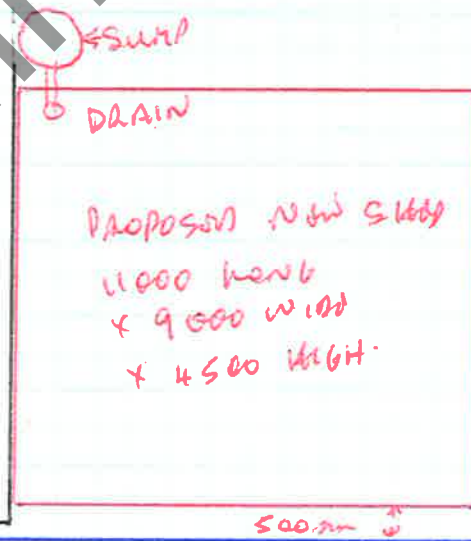 ←SUMP
DRAIN
PROPOSED NEW SHED
11000 LONG
x 9000 WIDE
x 4500 HIGH.
500mm